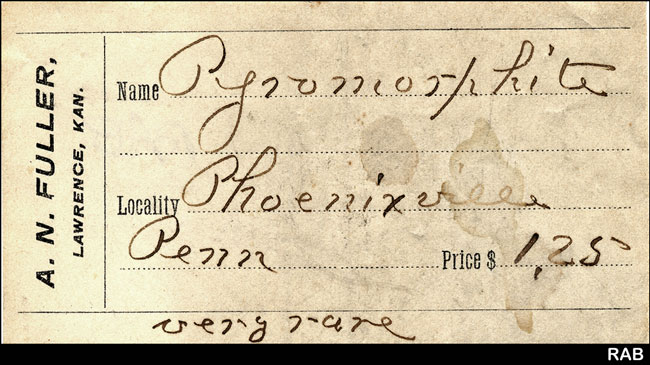 A. N. FULLER,
LAWRENCE, KAN.
Name Pyromorphite
Locality Phoenixville
Penn Price $ 1,25
very rare
RAB